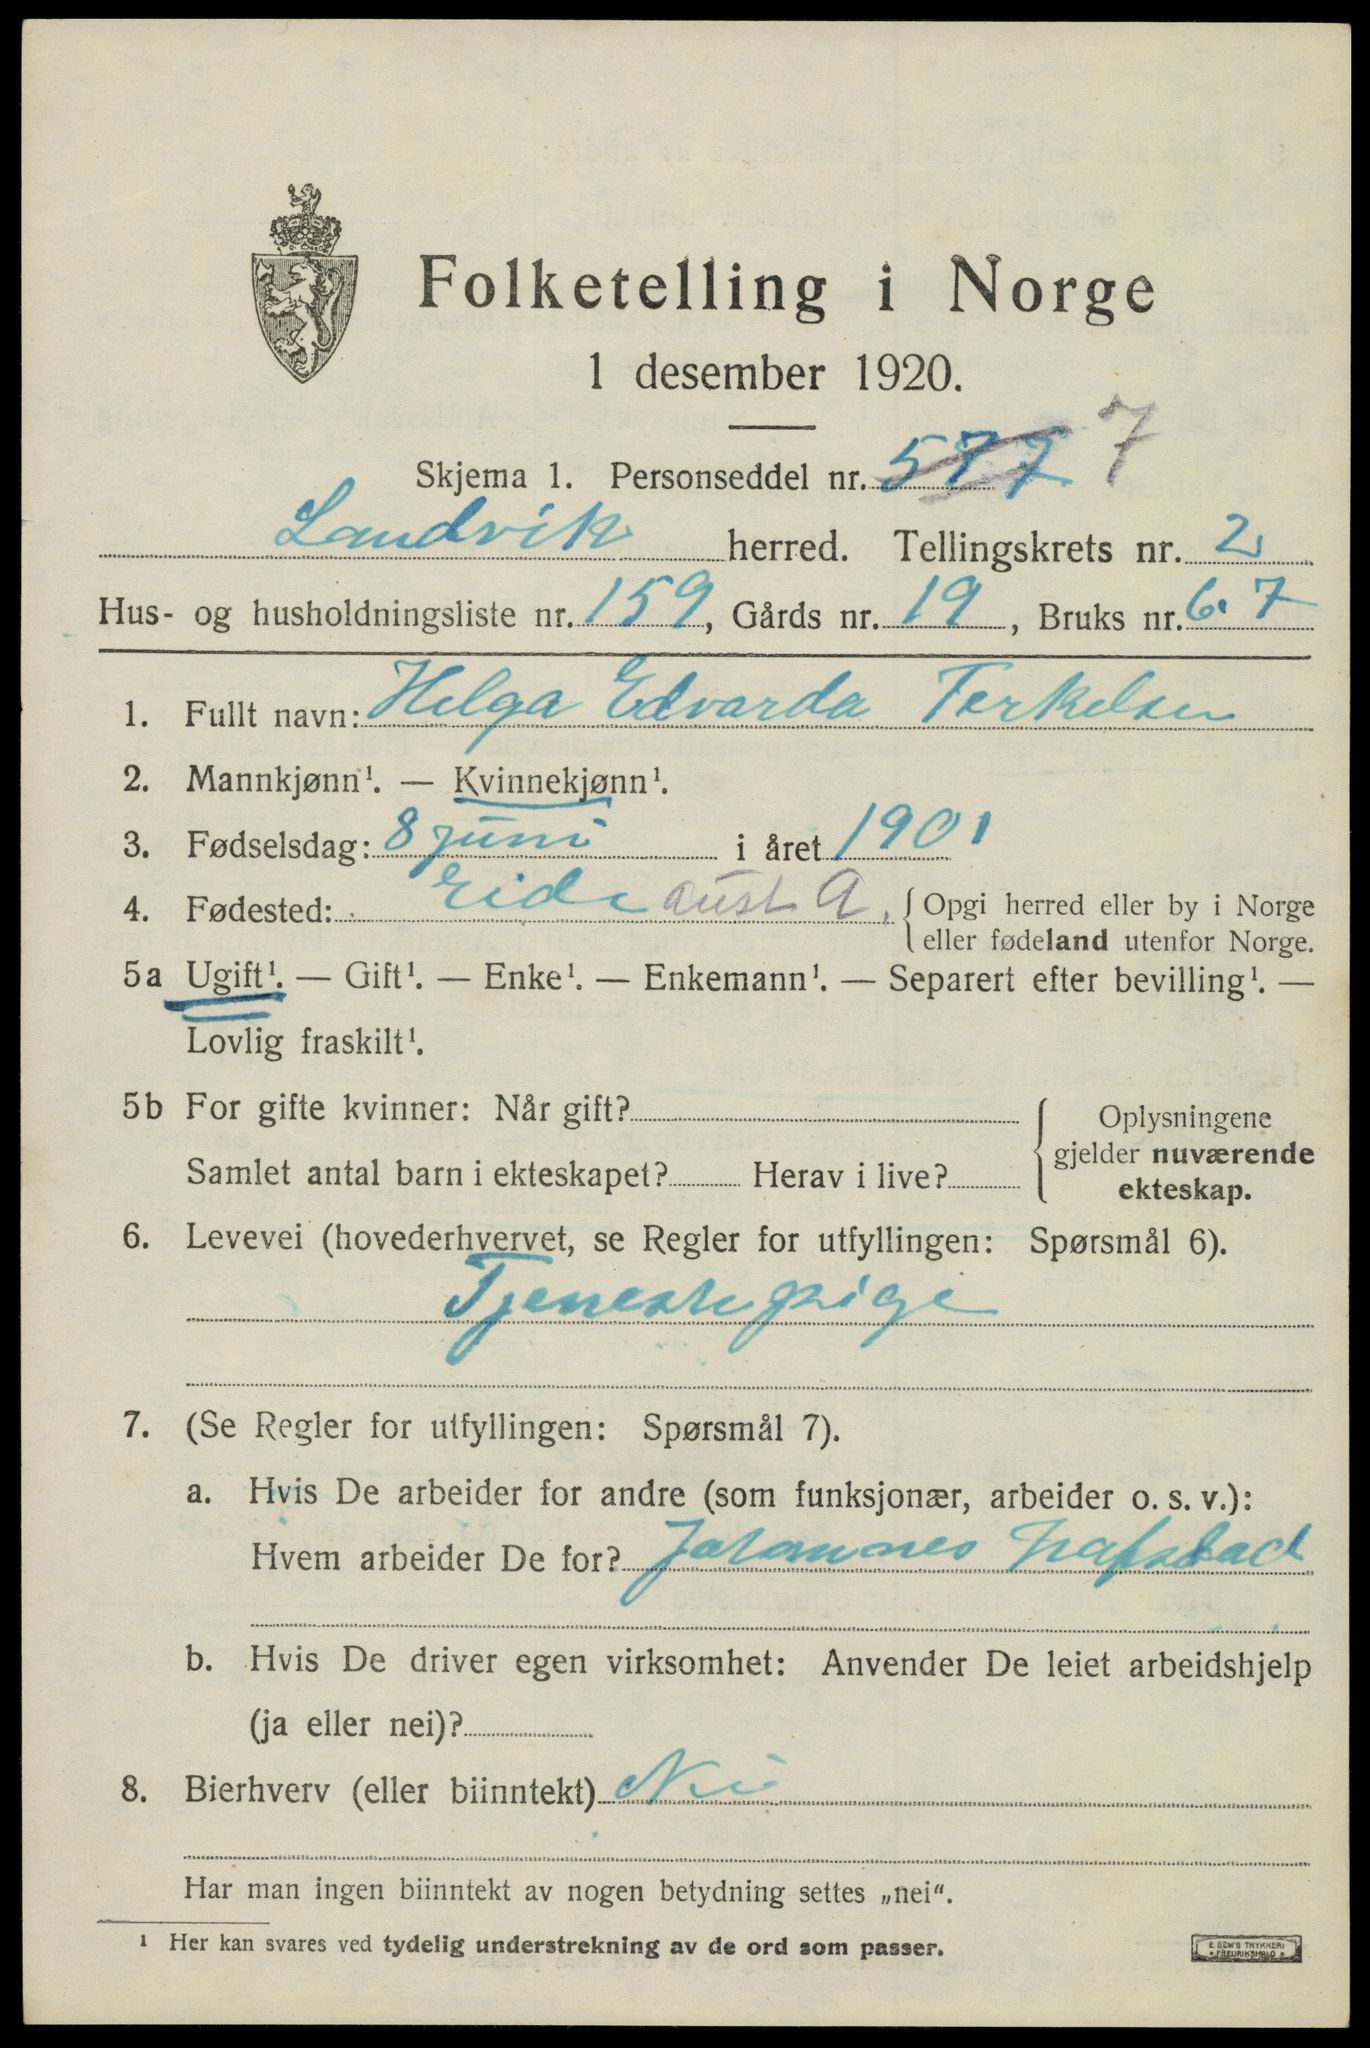 Folketelling i Norge
1 desember 1920.
Skjema 1. Personseddel nr. 577 7
Landvik herred. Tellingskrets nr. 2
Hus- og husholdningsliste nr. 159, Gårds nr. 19, Bruks nr. 6.7
1. Fullt navn: Helga Edvarda Terkelsen
2. Mannkjønn¹. — Kvinnekjønn¹.
3. Fødselsdag: 8 juni i året 1901
4. Fødested: Eide Aust A. { Opgi herred eller by i Norge
eller fødeland utenfor Norge.
5a Ugift¹. — Gift¹. — Enke¹. — Enkemann¹. — Separert efter bevilling¹. —
Lovlig fraskilt¹.
5b For gifte kvinner: Når gift?
Samlet antal barn i ekteskapet? Herav i live?
{ Oplysningene
gjelder nuværende
ekteskap.
6. Levevei (hovederhvervet, se Regler for utfyllingen: Spørsmål 6).
Tjenestepige
7. (Se Regler for utfyllingen: Spørsmål 7).
a. Hvis De arbeider for andre (som funksjonær, arbeider o. s. v.):
Hvem arbeider De for? Johannes
b. Hvis De driver egen virksomhet: Anvender De leiet arbeidshjelp
(ja eller nei)?
8. Bierhverv (eller biinntekt) Nei
Har man ingen biinntekt av nogen betydning settes „nei“.
¹ Her kan svares ved tydelig understrekning av de ord som passer.
E. SEM'S TRYKKERI
FREDRIKSHALD